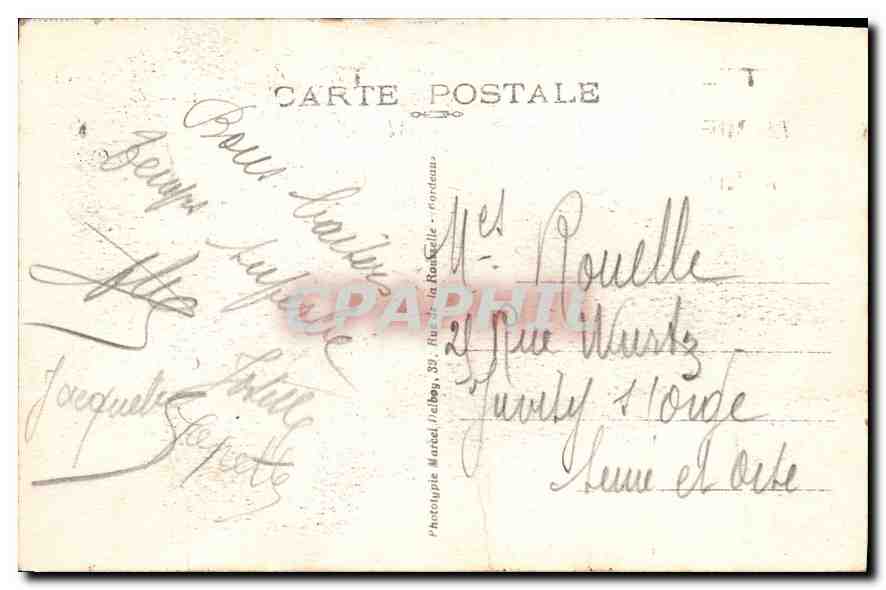 CARTE POSTALE
Bons baisers
temps superbe
Jacqueline
Phototypie Marcel Delboy, 39, Rue de la Rousselle - Bordeaux
CPAPHIL
Mes Rouelle
21 Rue Wurtz
Juvisy s/ Orge
Seine et Oise